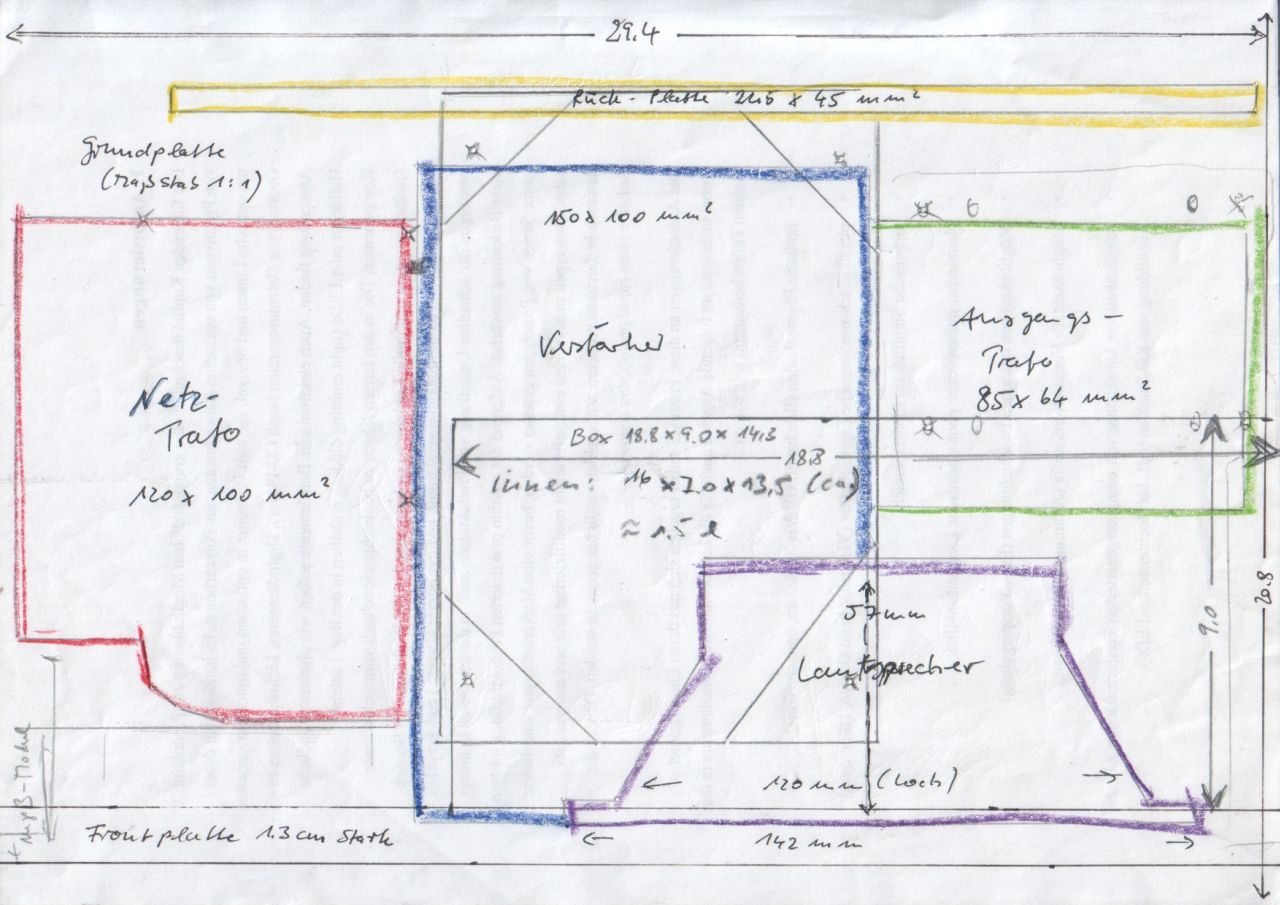 29.4
Rück-Platte 225 x 45 mm²
Grundplatte
(Maßstab 1:1)
150 x 100 mm²
Verstärker
Ausgangs-
Trafo
85 x 64 mm²
Netz-
Trafo
120 x 100 mm²
Box 18.8 x 9.0 x 14,3
18.8
innen: 16 x 7.0 x 13,5 (ca)
≈ 1.5 l
57 mm
Lautsprecher
9,0
20.8
120 mm (Loch)
Frontplatte 1.3 cm stark
142 mm